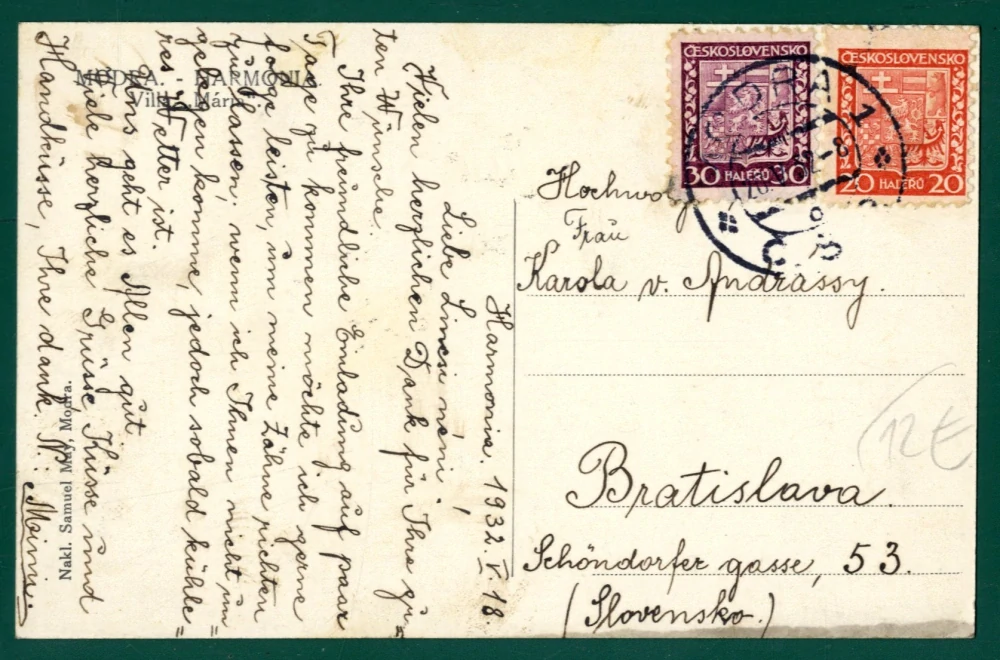 MODRA - HARMONIA
Villa „Mária".
Harmonia. 1932. V. 18.
Liebe Lincsi néni!
Vielen herzlichen Dank für Ihre gu=
ten Wünsche.
Ihre freundliche Einladung auf paar
Tage zu kommen möchte ich gerne
folge leisten, um meine Zähne richten
zu lassen, wenn ich Ihnen nicht un
gelegen komme, jedoch sobald kühle=
res Wetter ist.
Uns geht es Allen gut
Viele herzliche Grüsse, Küsse und
Handküsse, Ihre dankb. N:
Mimi.
Nakl. Samuel May, Modra.
ČESKOSLOVENSKO
30 HALÉŘŮ 30
ČESKOSLOVENSKO
20 HALÉŘŮ 20
Frau
Karola v. Andrássy.
Bratislava.
Schöndorfer gasse, 53.
(Slovensko.)
12 €